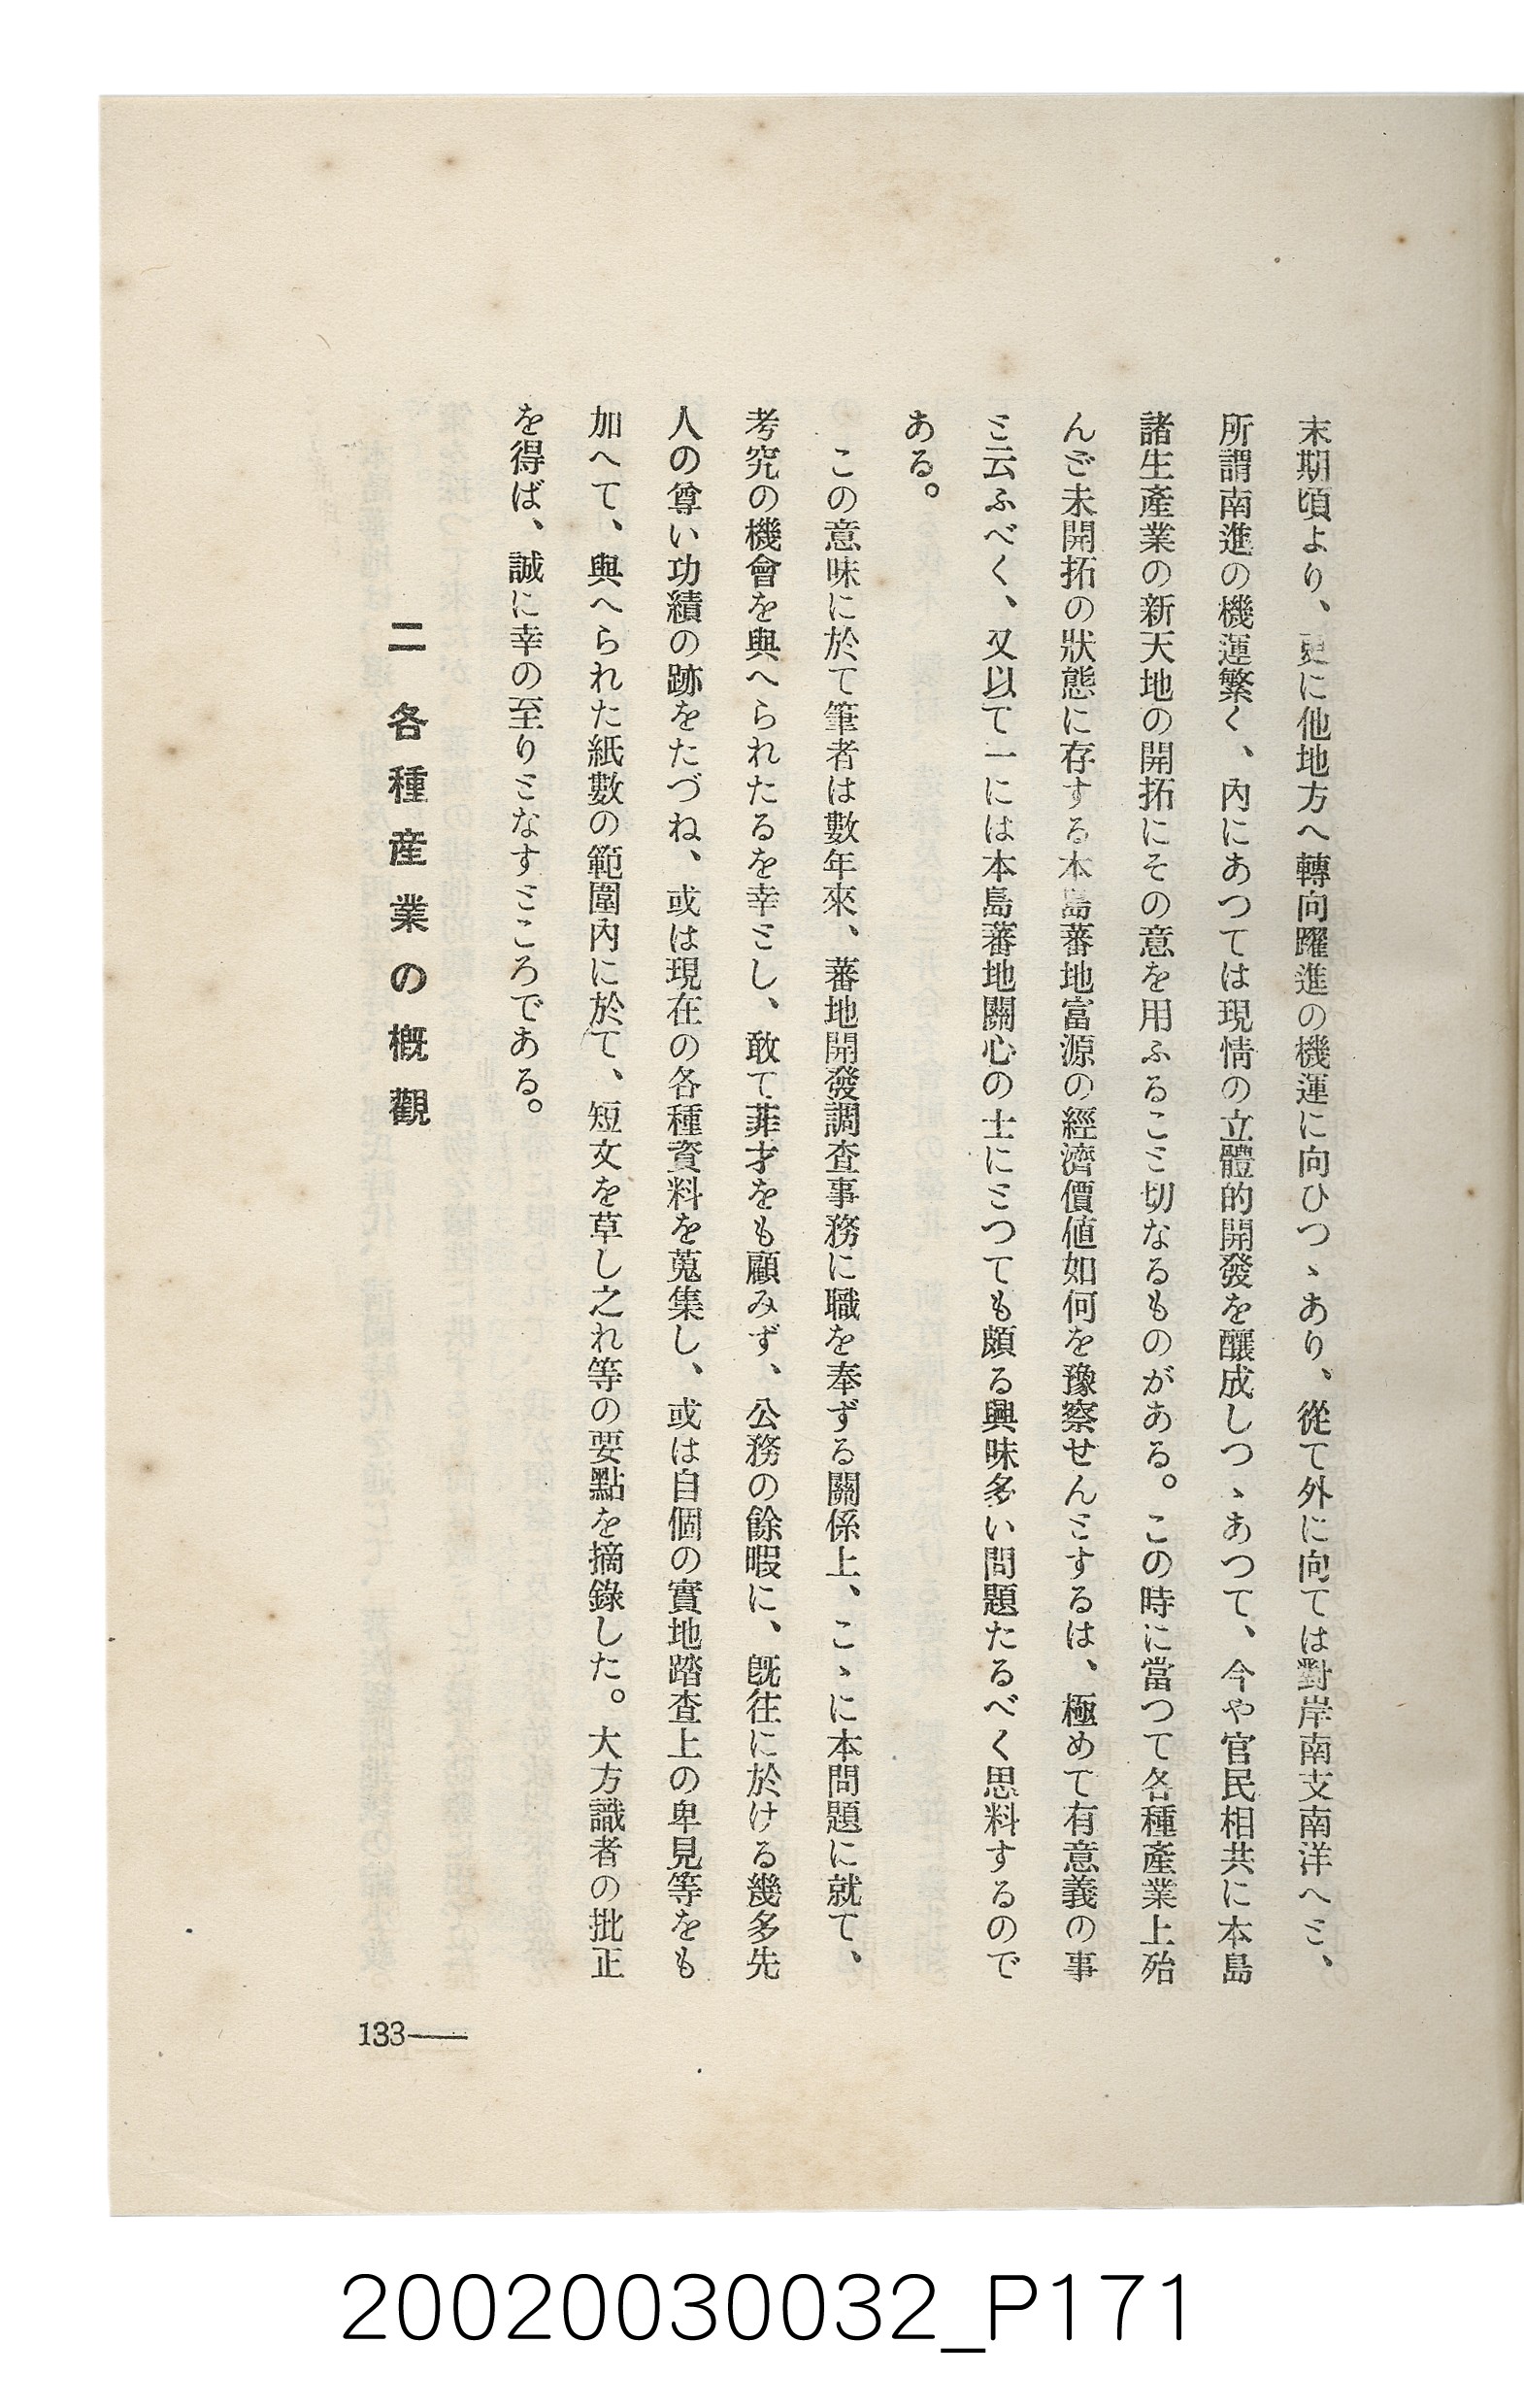 末期頃より、更に他地方へ轉向躍進の機運に向ひつゝあり、從て外に向ては對岸南支南洋へミ、
所謂南進の機運繁く、內にあつては現情の立體的開發を釀成しつゝあつて、今や官民相共に本島
諸生產業の新天地の開拓にその意を用ふるこミ切なるものがある。この時に當つて各種產業上殆
んご未開拓の狀態に存する本島蕃地富源の經濟價値如何を豫察せんミするは、極めて有意義の事
ミ云ふべく、又以て一には本島蕃地關心の士にミつても頗る興味多い問題たるべく思料するので
ある。
この意味に於て筆者は數年來、蕃地開發調査事務に職を奉ずる關係上、こゝに本問題に就て、
考究の機會を與へられたるを幸ミし、敢て菲才をも顧みず、公務の餘暇に、既往に於ける幾多先
人の尊い功績の跡をたづね、或は現在の各種資料を蒐集し、或は自個の實地踏查上の卑見等をも
加へて、與へられた紙數の範圍內に於て、短文を草し之れ等の要點を摘錄した。大方識者の批正
を得ば、誠に幸の至りミなすミころである。
二 各種産業の概觀
133―
20020030032_P171